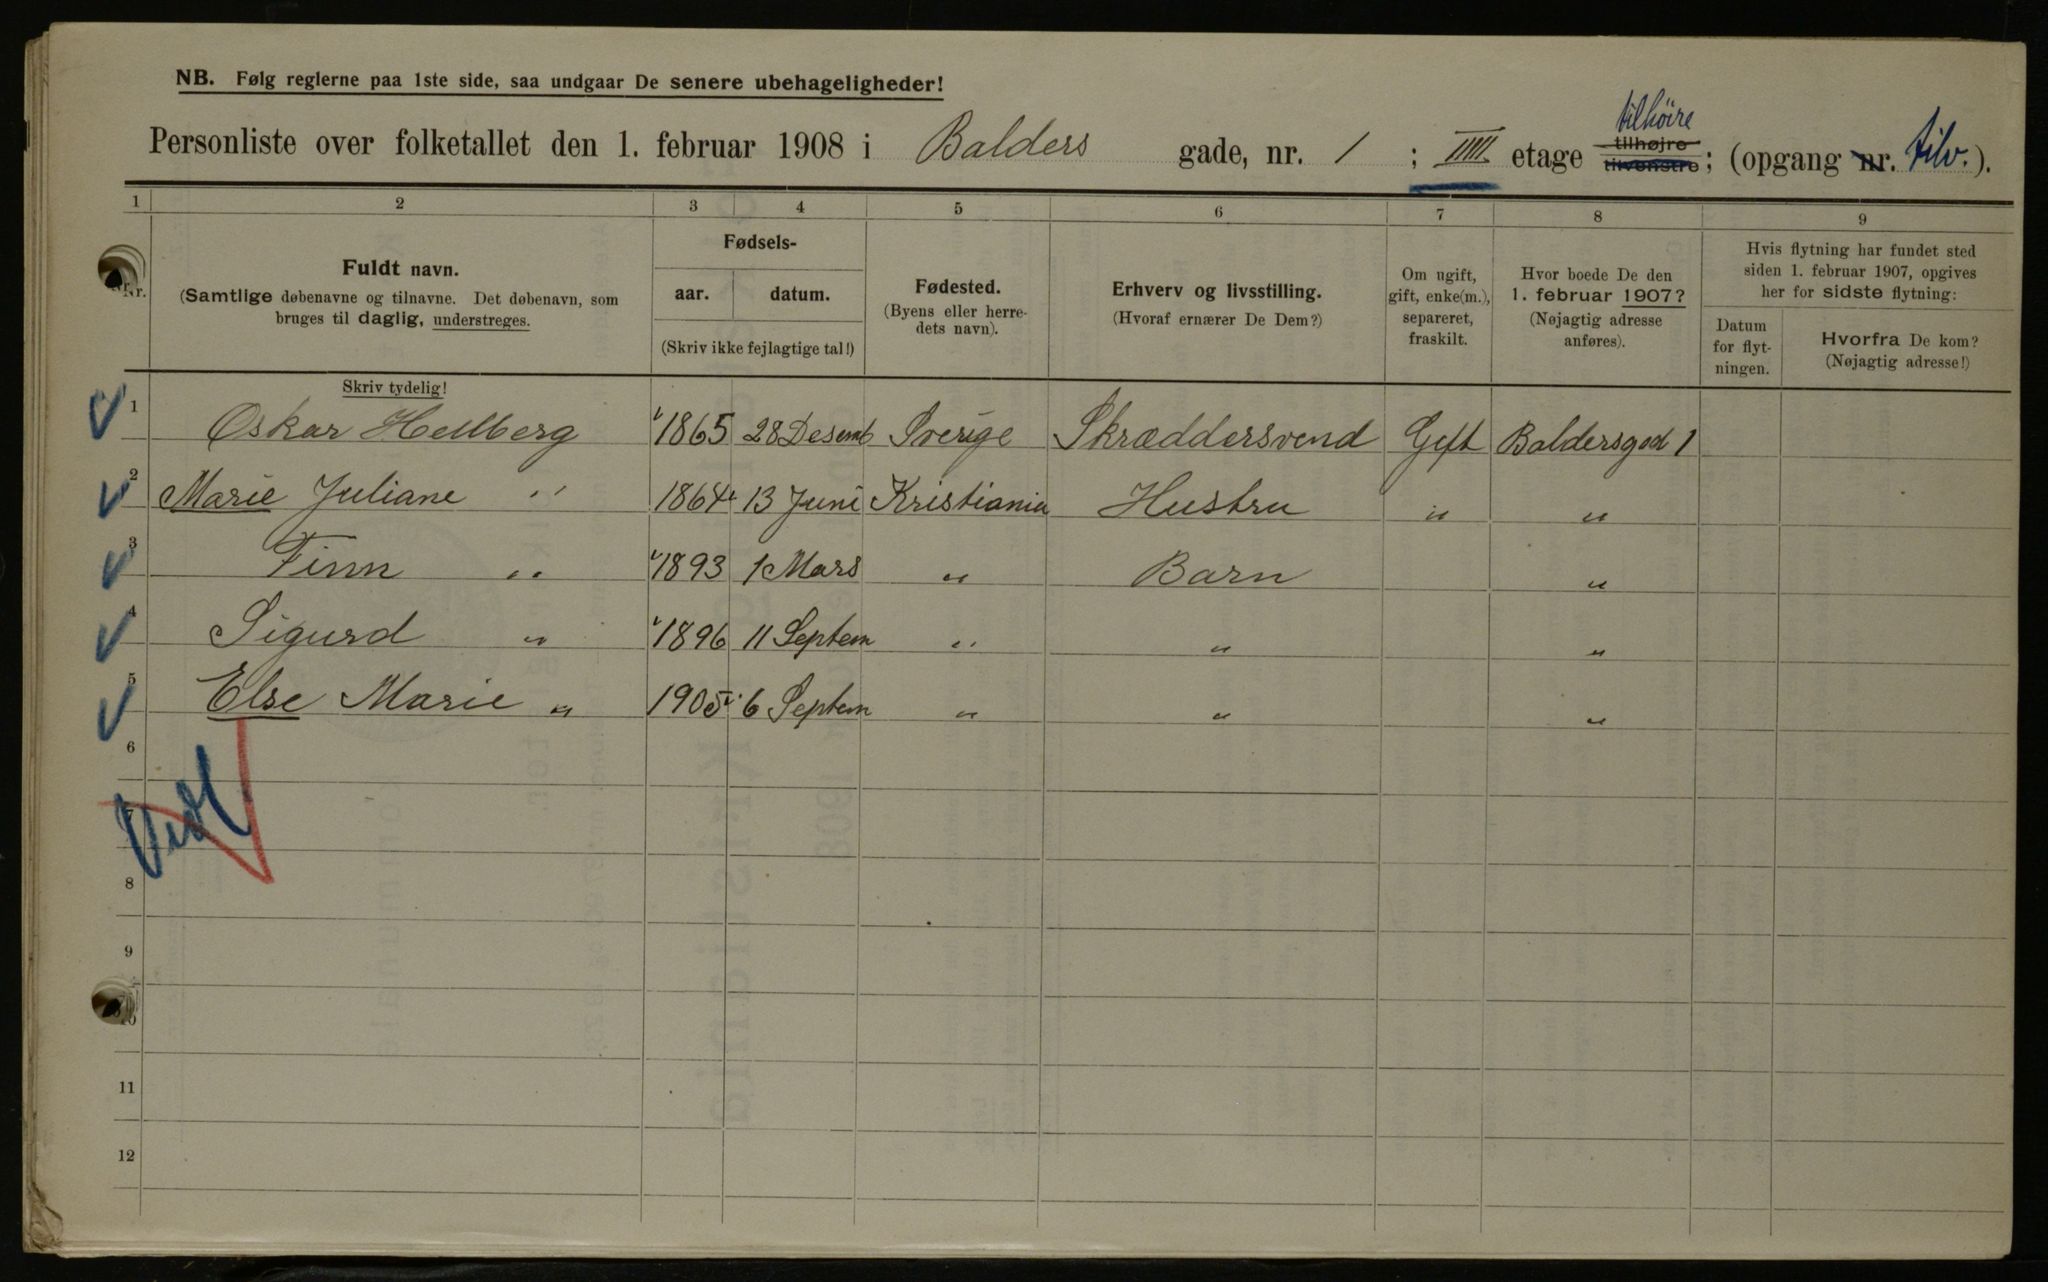 NB. Følg reglerne paa 1ste side, saa undgaar De senere ubehageligheder!
Personliste over folketallet den 1. februar 1908 i Balders gade, nr. 1 ; IIII. etage tilhøire tilhøjre tilvenstre ; (opgang nr. tilv.).
1 2 3 4 5 6 7 8 9
Nr.
Fuldt navn.
(Samtlige døbenavne og tilnavne. Det døbenavn, som
bruges til daglig, understreges.
Skriv tydelig!
Fødsels-
aar. datum.
(Skriv ikke fejlagtige tal!)
Fødested.
(Byens eller herre-
dets navn).
Erhverv og livsstilling.
(Hvoraf ernærer De Dem?)
Om ugift,
gift, enke(m.),
separeret,
fraskilt.
Hvor boede De den
1. februar 1907?
(Nøjagtig adresse
anføres).
Hvis flytning har fundet sted
siden 1. februar 1907, opgives
her for sidste flytning:
Datum
for flyt-
ningen.
Hvorfra De kom?
(Nøjagtig adresse!)
1 Oskar Hellberg 1865 28 Desemb Sverige Skræddersvend Gift Baldersgad 1
2 Marie Juliane " 1864 13 Juni Kristiania Hustru " "
3 Finn " 1893 1 Mars " Barn "
4 Sigurd " 1896 11 Septem " " "
5 Else Marie " 1905 6 Septem " " "
6
7
8
9
10
11
12